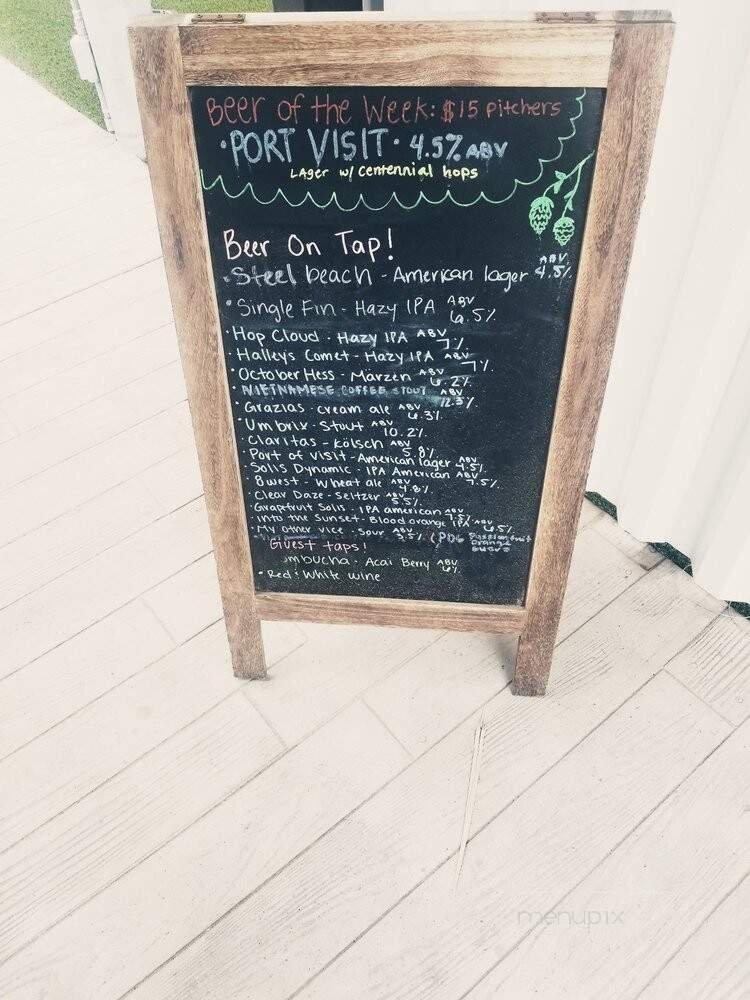 Beer of the Week: $15 pitchers
• PORT VISIT • 4.5% ABV
Lager w/ Centennial hops
Beer On Tap!
• Steel beach - American lager ABV 4.5%
• Single Fin - Hazy IPA ABV 6.5%
• Hop Cloud - Hazy IPA ABV 7%
• Halleys Comet - Hazy IPA ABV 7%
• October Hess - Märzen ABV 6.2%
• VIETNAMESE COFFEE STOUT ABV 12.3%
• Grazias - cream ale ABV 6.3%
• Umbrix - Stout ABV 10.2%
• Claritas - Kölsch ABV 5.8%
• Port of visit - American lager ABV 4.5%
• Solis Dynamic - IPA American ABV 7.5%
• 8west - Wheat ale ABV 4.8%
• Clear Daze - Seltzer ABV 5.5%
• Grapfruit Solis - IPA american ABV 7.5%
• into the Sunset - Blood orange IPA ABV 6.5%
• My other vice - Sour ABV 3.5% (POG Passionfruit orange guava
Guest taps!
mbucha - Acai Berry ABV 6%
• Red: White wine
menupix